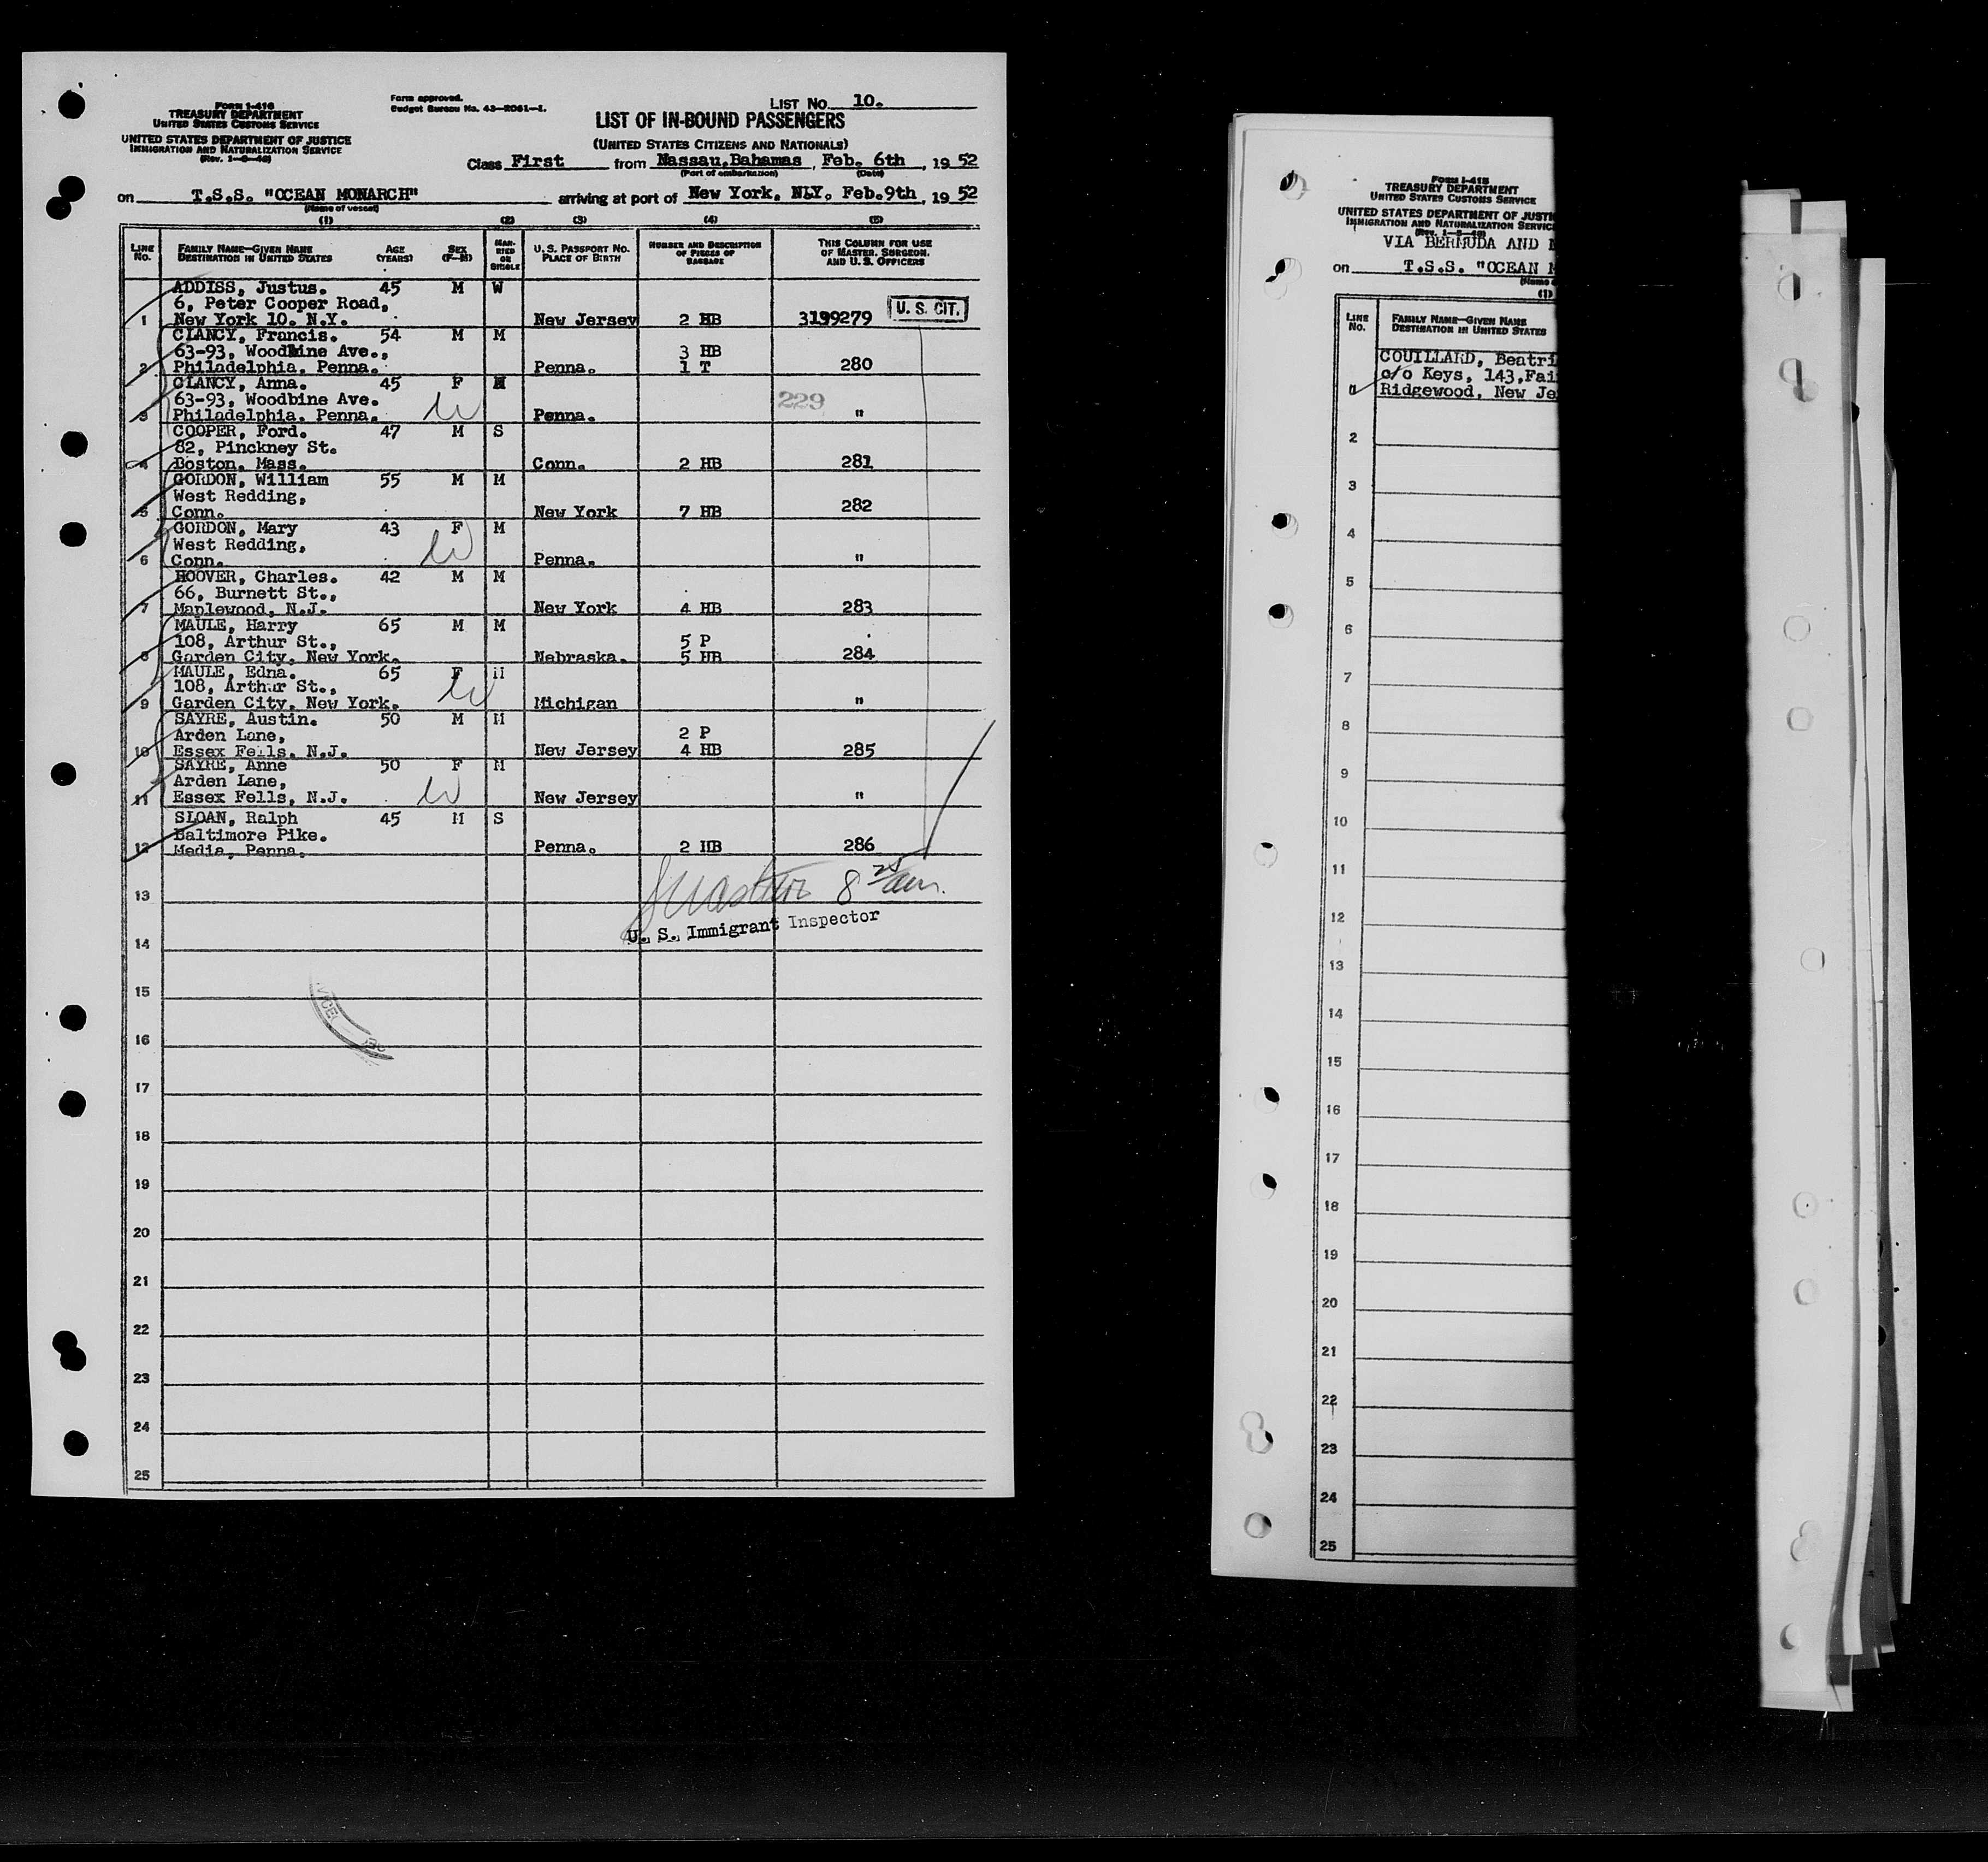 Form I-416
TREASURY DEPARTMENT
UNITED STATES CUSTOMS SERVICE
UNITED STATES DEPARTMENT OF JUSTICE
IMMIGRATION AND NATURALIZATION SERVICE
Form approved.
Budget Bureau No. 43-R061-1.
LIST No. 10.
LIST OF IN-BOUND PASSENGERS
(UNITED STATES CITIZENS AND NATIONALS)
Class First from Nassau, Bahamas, Feb. 6th, 1952
(Port of embarkation) (Date)
on T.S.S. "OCEAN MONARCH" arriving at port of New York, NLY. Feb.9th, 1952
(Name of vessel)
(1) (2) (3) (4) (5)
LINE No. FAMILY NAME—GIVEN NAME DESTINATION IN UNITED STATES AGE (YEARS) SEX (F—M) MARRIED OR SINGLE U. S. PASSPORT No. PLACE OF BIRTH NUMBER AND DESCRIPTION OF PIECES OF BAGGAGE THIS COLUMN FOR USE OF MASTER, SURGEON, AND U. S. OFFICERS
ADDISS, Justus. 45 M W
6, Peter Cooper Road,
1 New York 10. N.Y. New Jersey 2 HB 3199279 U. S. CIT.
CLANCY, Francis. 54 M M
63-93, Woodbine Ave., 3 HB
2 Philadelphia, Penna. Penna. 1 T 280
CLANCY, Anna. 45 F M
63-93, Woodbine Ave. W 229
3 Philadelphia, Penna. Penna. "
COOPER, Ford. 47 M S
82, Pinckney St.
4 Boston, Mass. Conn. 2 HB 281
GORDON, William 55 M M
West Redding,
5 Conn. New York 7 HB 282
GORDON, Mary 43 F M
West Redding, W
6 Conn. Penna. "
HOOVER, Charles. 42 M M
66, Burnett St.,
7 Maplewood, N.J. New York 4 HB 283
MAULE, Harry 65 M M
108, Arthur St., 5 P
8 Garden City, New York. Nebraska. 5 HB 284
MAULE, Edna. 65 F M
108, Arthur St., W
9 Garden City, New York. Michigan "
SAYRE, Austin. 50 M M
Arden Lane, 2 P
10 Essex Fells, N.J. New Jersey 4 HB 285
SAYRE, Anne 50 F M
Arden Lane, W
11 Essex Fells, N.J. New Jersey "
SLOAN, Ralph 45 M S
Baltimore Pike.
12 Media, Penna. Penna. 2 HB 286
8 25 am.
U. S. Immigrant Inspector
13
14
15
16
17
18
19
20
21
22
23
24
25
TREASURY DEPARTMENT
UNITED STATES CUSTOMS SERVICE
UNITED STATES DEPARTMENT OF JUSTI
IMMIGRATION AND NATURALIZATION SERVIC
VIA BERMUDA AND
on T.S.S. "OCEAN M
(Name o
(1)
LINE No. FAMILY NAME—GIVEN NAME DESTINATION IN UNITED STATES
COUILLARD, Beatri
c/o Keys, 143,Fai
Ridgewood, New Je
2
3
4
5
6
7
8
9
10
11
12
13
14
15
16
17
18
19
20
21
22
23
24
25